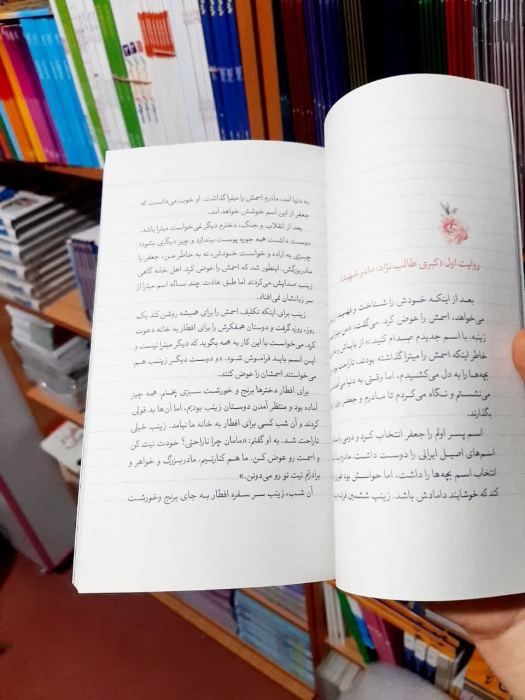 روایت اول (کبری طالب‌نژاد: مادر شهید)
بعد از اینکه خودش را شناخت و فهمید از
می‌خواهد، اسمش را عوض کرد. می‌گفت: «من
زینبه. با اسم جدیدم صدام کنید.» از بابایش
خاطر اینکه اسمش را میترا گذاشته بودند.
بچه‌ها را به دل می‌کشیدم، اما وقتی به دنیا
می‌نشستم و نگاه می‌کردم تا مادرم و جعفر
بگذارند.
اسم پسر اولم را جعفر انتخاب کرد و
اسم‌های اصیل ایرانی را دوست داشت. مادرم
انتخاب اسم بچه‌ها را داشت، اما حواسش بود
کند که خوشایند دامادش باشد. زینب ششمین
به دنیا آمد، مادرم اسمش را میترا گذاشت. او خوب می‌دانست که
جعفر از این اسم خوشش خواهد آمد.
بعد از انقلاب و جنگ، دخترم دیگر نمی‌خواست میترا باشد.
دوست داشت همه جوره پوست بیندازد و چیز دیگری بشود؛
چیزی به اراده و خواست خودش، نه به خاطر من، جعفر یا
مادربزرگش. اینطور شد که اسمش را عوض کرد. اهل خانه گاهی
زینب صدایش می‌کردند اما طبق عادت چند ساله اسم میترا از
سر زبانشان نمی‌افتاد.
زینب برای اینکه تکلیف اسمش را برای همیشه روشن کند یک
روز، روزه گرفت و دوستان همفکرش را برای افطار به خانه دعوت
کرد. می‌خواست با این کار به همه بگوید که دیگر میترا نیست و
این اسم باید فراموش شود. دو دوست دیگر زینب هم
می‌خواستند اسمشان را عوض کنند.
برای افطار دخترها برنج و خورشت سبزی پختم. همه چیز
آماده بود و منتظر آمدن دوستان زینب بودیم، اما آن‌ها بد قولی
کردند و آن شب کسی برای افطار به خانه ما نیامد. زینب خیلی
ناراحت شد. به او گفتم: «مامان چرا ناراحتی؟ خودت نیت کن
و اسمت رو عوض کن. ما هم کنارتیم. مادربزرگ و خواهر و
برادرتم نیت تو رو می‌دونن.»
آن شب، زینب سر سفره افطار به جای برنج و خورشت